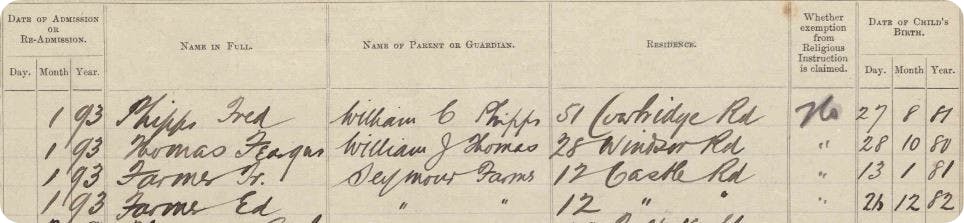 DATE OF ADMISSION OR RE-ADMISSION. NAME IN FULL. NAME OF PARENT OR GUARDIAN. RESIDENCE. Whether exemption from Religious Instruction is claimed. DATE OF CHILD'S BIRTH.
Day. Month Year. Day. Month Year.
1 93 Phipps Fred William C Phipps 51 Cowbridge Rd No 27 8 81
1 93 Thomas Feargus William J Thomas 28 Windsor Rd " 28 10 80
1 93 Farmer Fr. Seymour Farmer 12 Castle Rd " 13 1 81
1 93 Farmer Ed " " 12 " " " 26 12 82